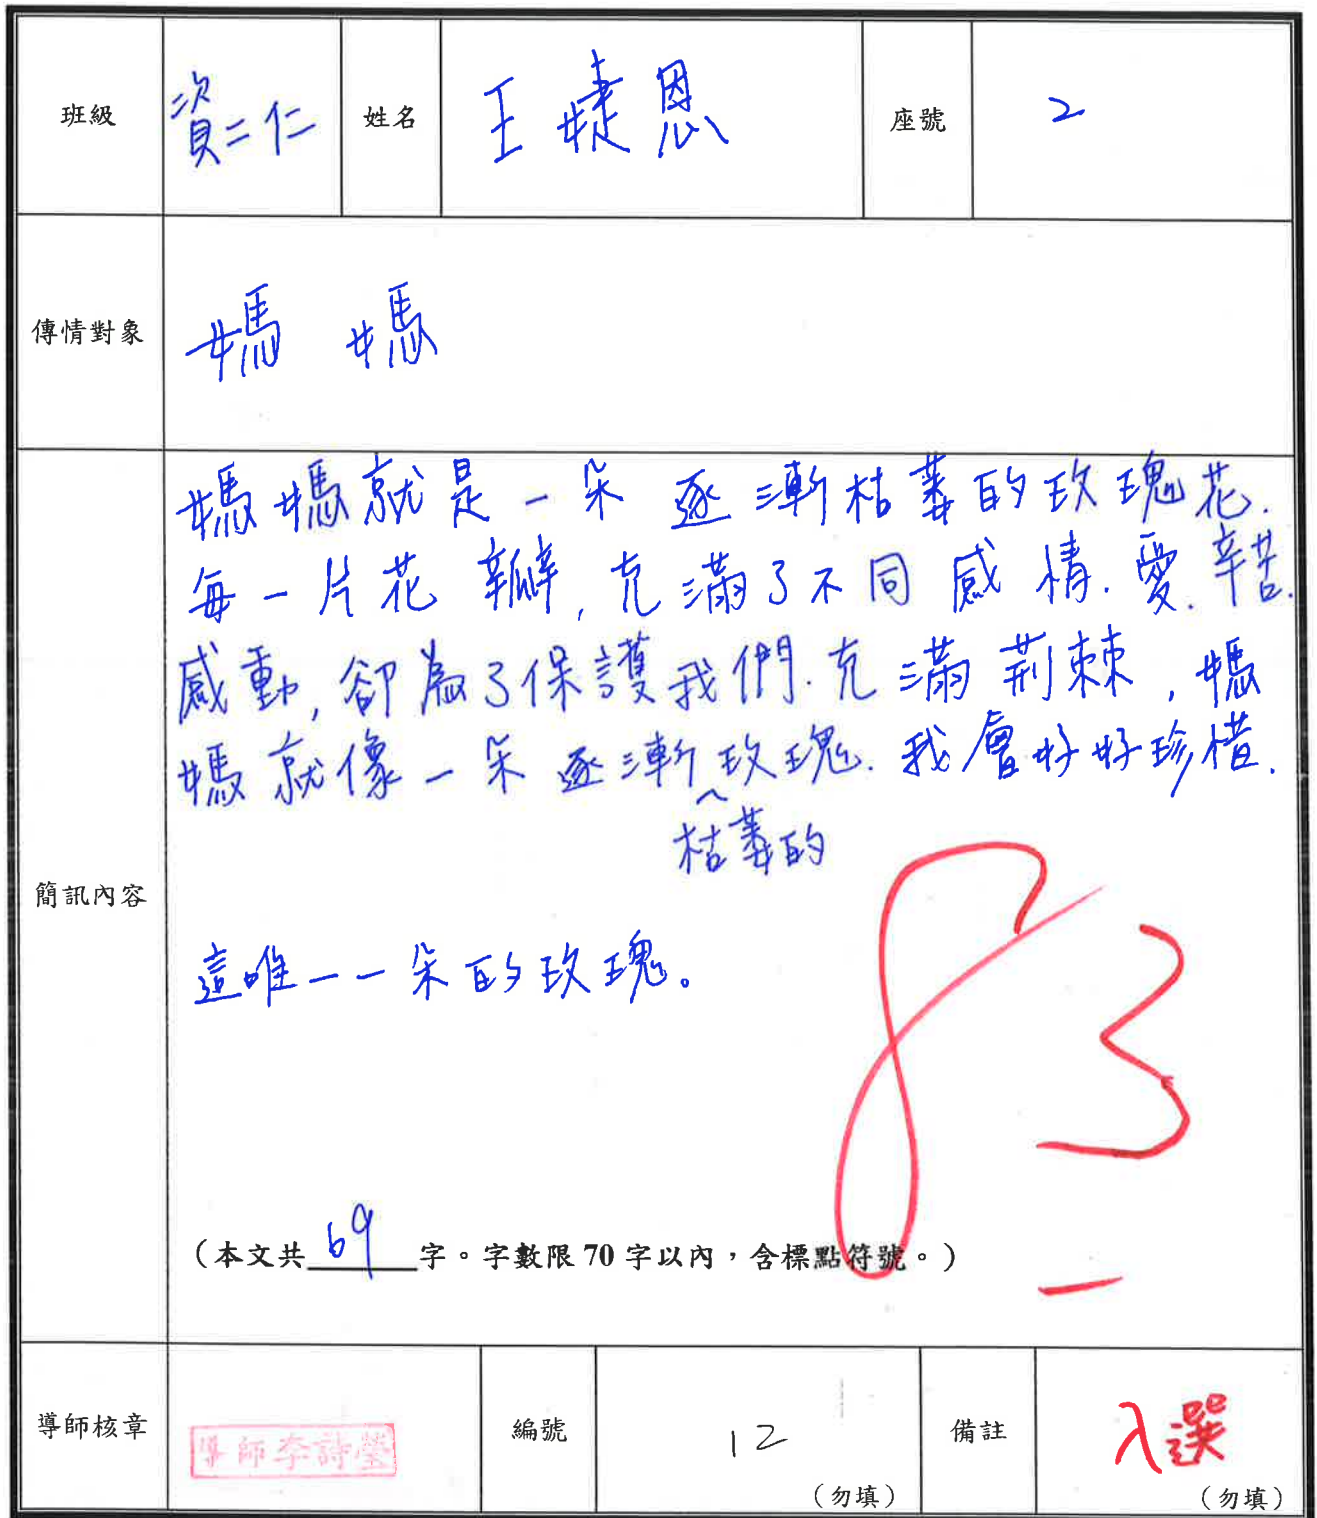 班級 資二仁 姓名 王婕恩 座號 2
傳情對象 媽媽
媽媽就是一朵逐漸枯萎的玫瑰花.
每一片花瓣,充滿了不同感情.愛.辛苦.
感動,卻為了保護我們.充滿荊棘,媽
媽就像一朵逐漸玫瑰.我會好好珍惜.
枯萎的
簡訊內容
這唯一一朵的玫瑰。
83
(本文共69字。字數限70字以內,含標點符號。)
導師核章 導師李詩瑩 編號 12 (勿填) 備註 入選 (勿填)